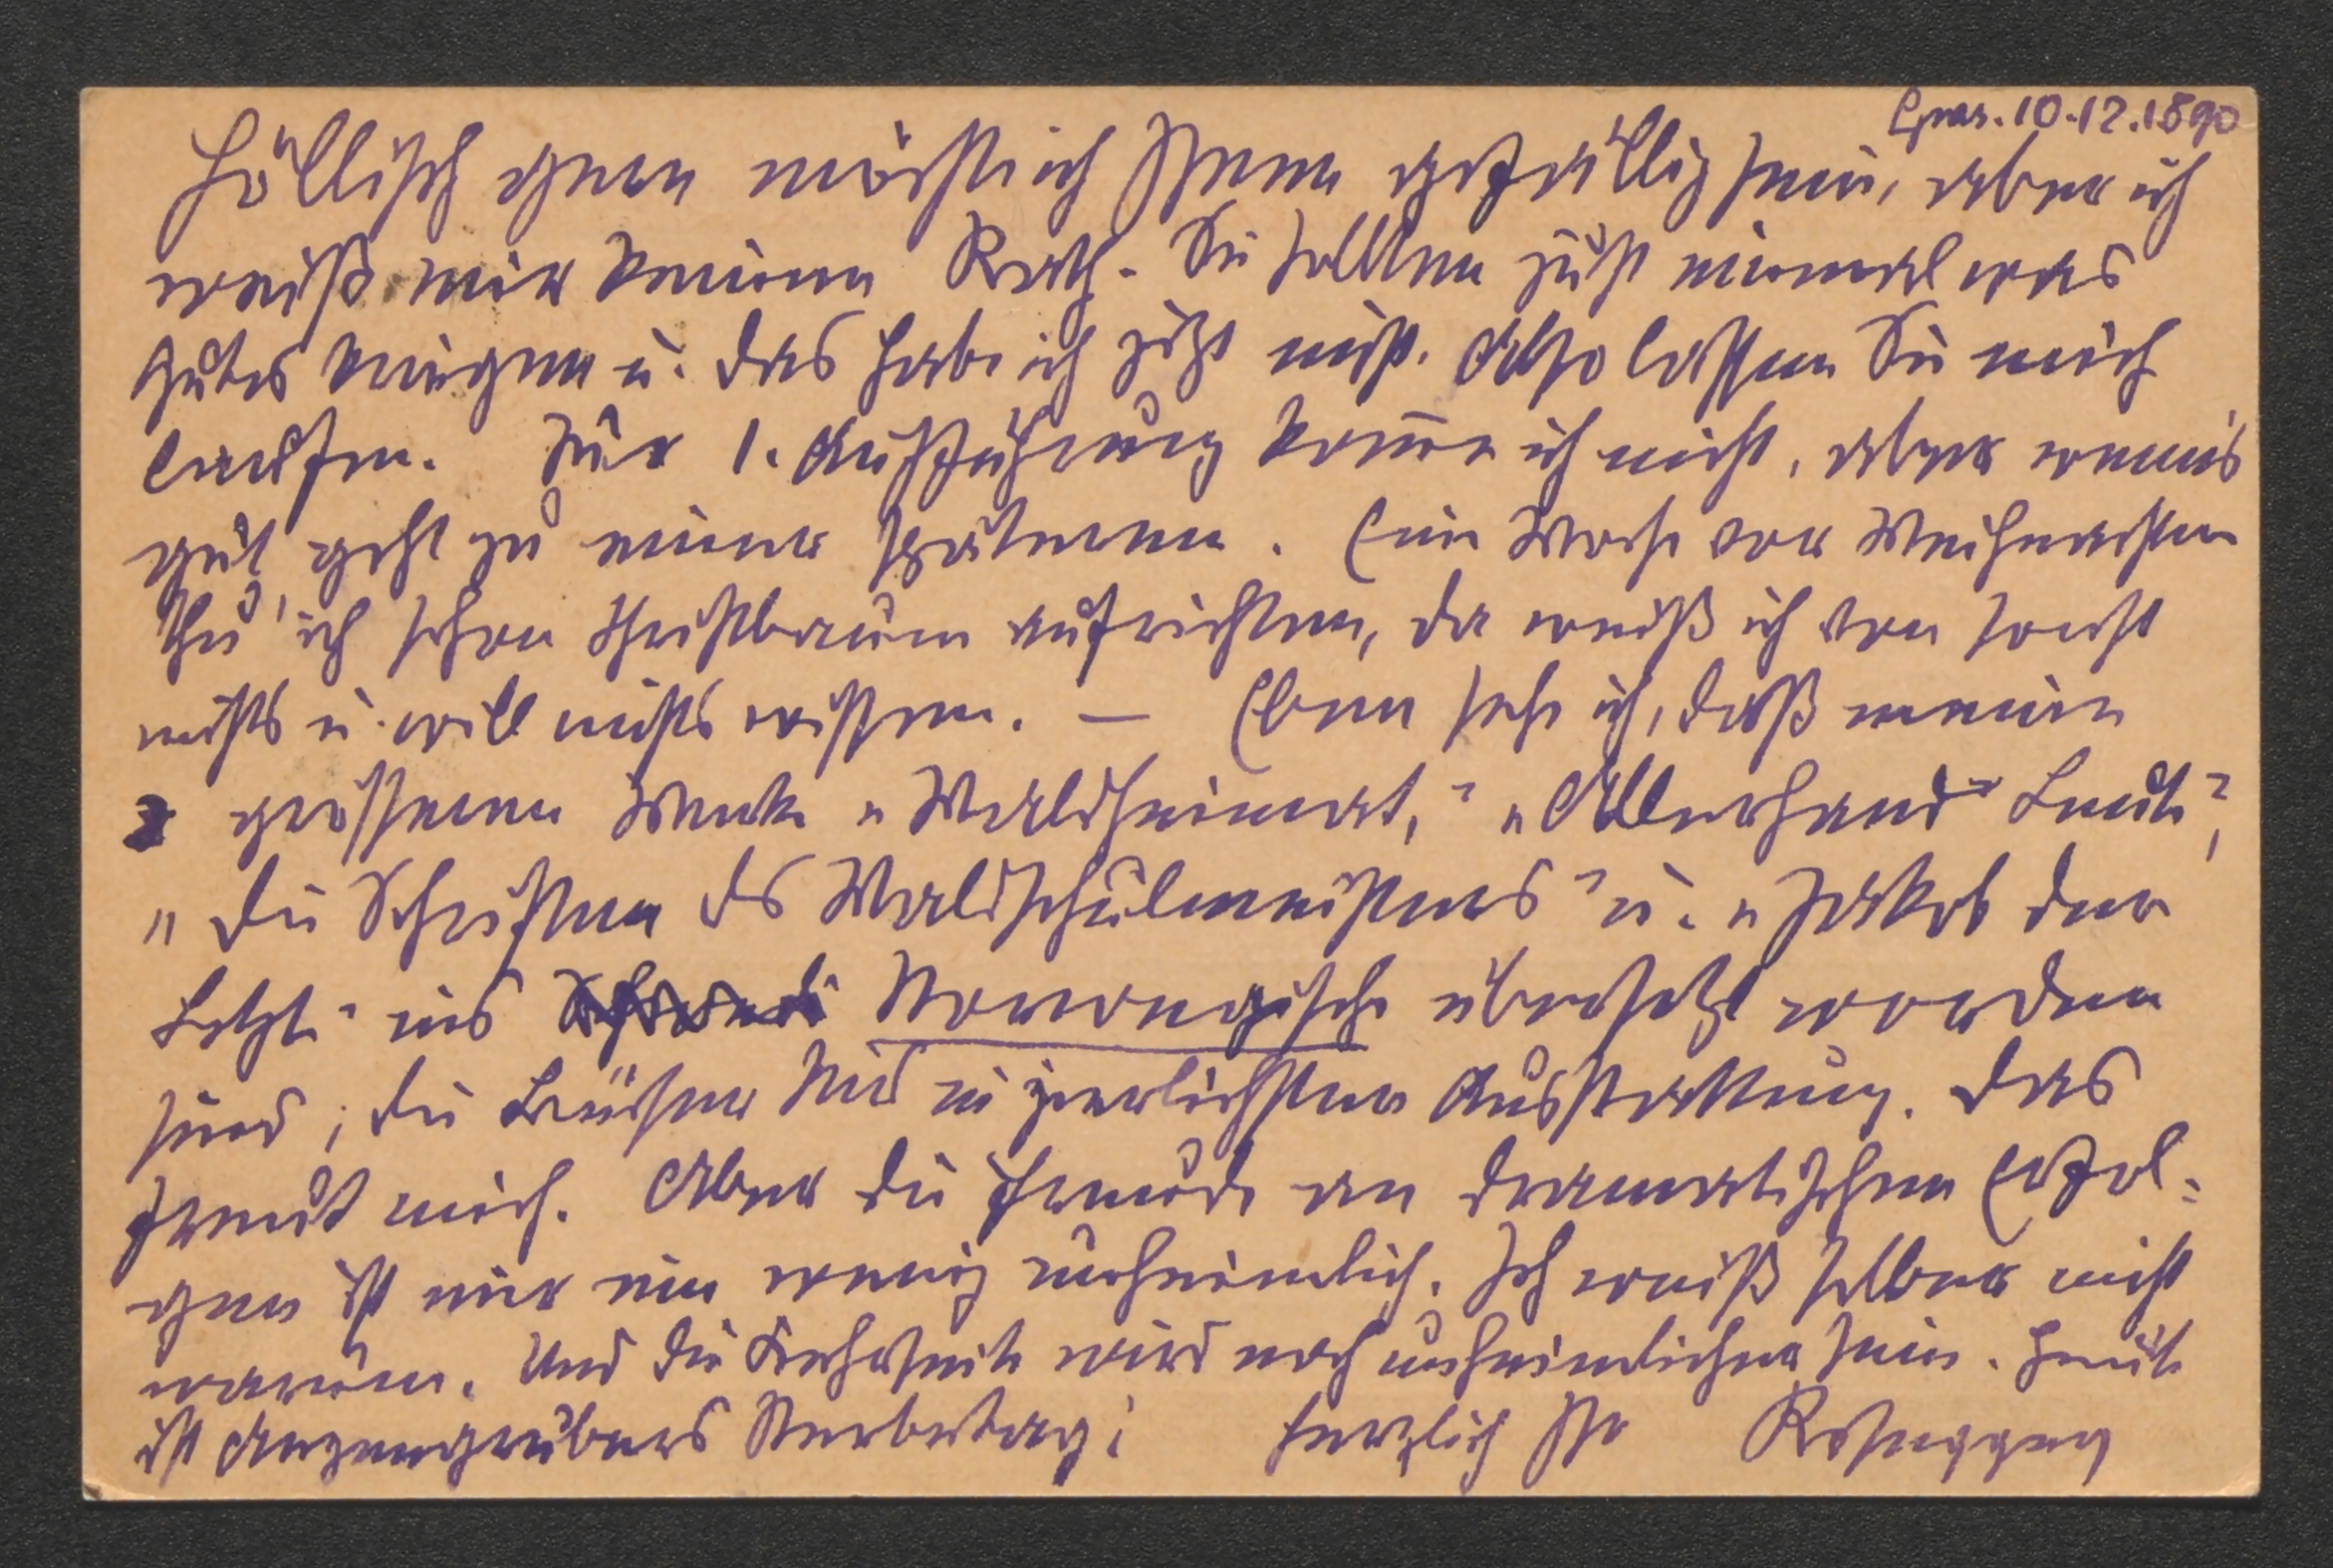 Graz. 10.12.1890
Höllisch gern möcht ich Ihnen gefällig sein, aber ich
weiß mir keinen Rath. Sie sollten just einmal was
Gutes kriegen u. das habe ich jetzt nicht. Also lassen Sie mich
laufen. Zur 1. Aufführung komme ich nicht, aber wenns
gut geht zu einer späteren. Eine Woche vor Weihnachten
thu' ich schon Christbaum aufrichten, da weiß ich von sonst
nichts u. will nichts wissen. — Eben sehe ich, daß meine
größeren Werke „Waldheimat," „Allerhand Leute",
„Die Schriften des Waldschulmeisters" u. „Jakob der
Letzte" ins Norwegische übersetzt worden
sind; die Bücher sind in zierlichster Ausstattung. Das
freut mich. Aber die Freude an dramatischen Erfol-
gen ist mir ein wenig unheimlich. Ich weiß selber nicht
warum. Und die Kehrseite wird noch unheimlicher sein. Heute
ist Anzengrubers Sterbetag! Herzlich Ihr Rosegger